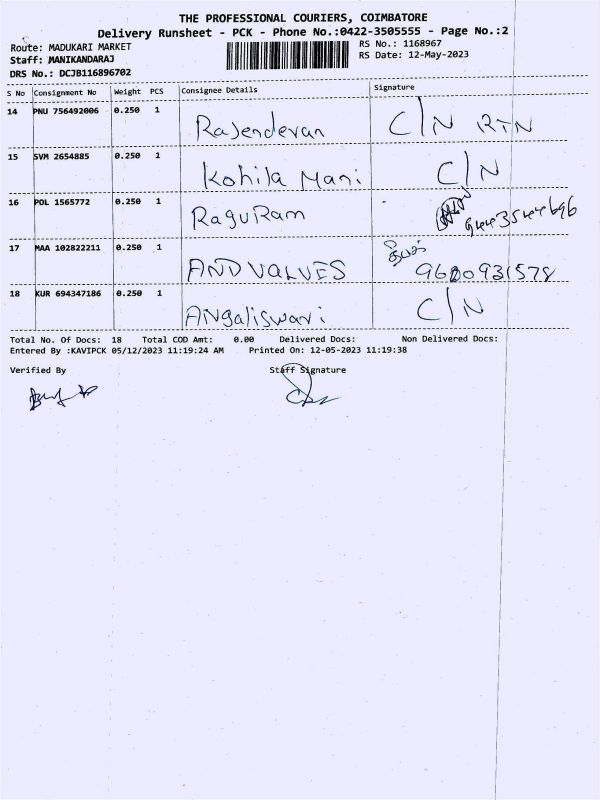 THE PROFESSIONAL COURIERS, COIMBATORE
Delivery Runsheet - PCK - Phone No.:0422-3505555 - Page No.:2
Route: MADUKARI MARKET RS No.: 1168967
Staff: MANIKANDARAJ RS Date: 12-May-2023
DRS No.: DCJB116896702
S No Consignment No Weight PCS Consignee Details Signature
14 PNU 756492006 0.250 1 Rajendevan C/N RTN
15 SVM 2654885 0.250 1 Kohila Mani C/N
16 POL 1565772 0.250 1 RaguRam 9443544696
17 MAA 102822211 0.250 1 ANDVALVES 9600931578
18 KUR 694347186 0.250 1 Angaliswari C/N
Total No. Of Docs: 18 Total COD Amt: 0.00 Delivered Docs: Non Delivered Docs:
Entered By :KAVIPCK 05/12/2023 11:19:24 AM Printed On: 12-05-2023 11:19:38
Verified By Staff Signature